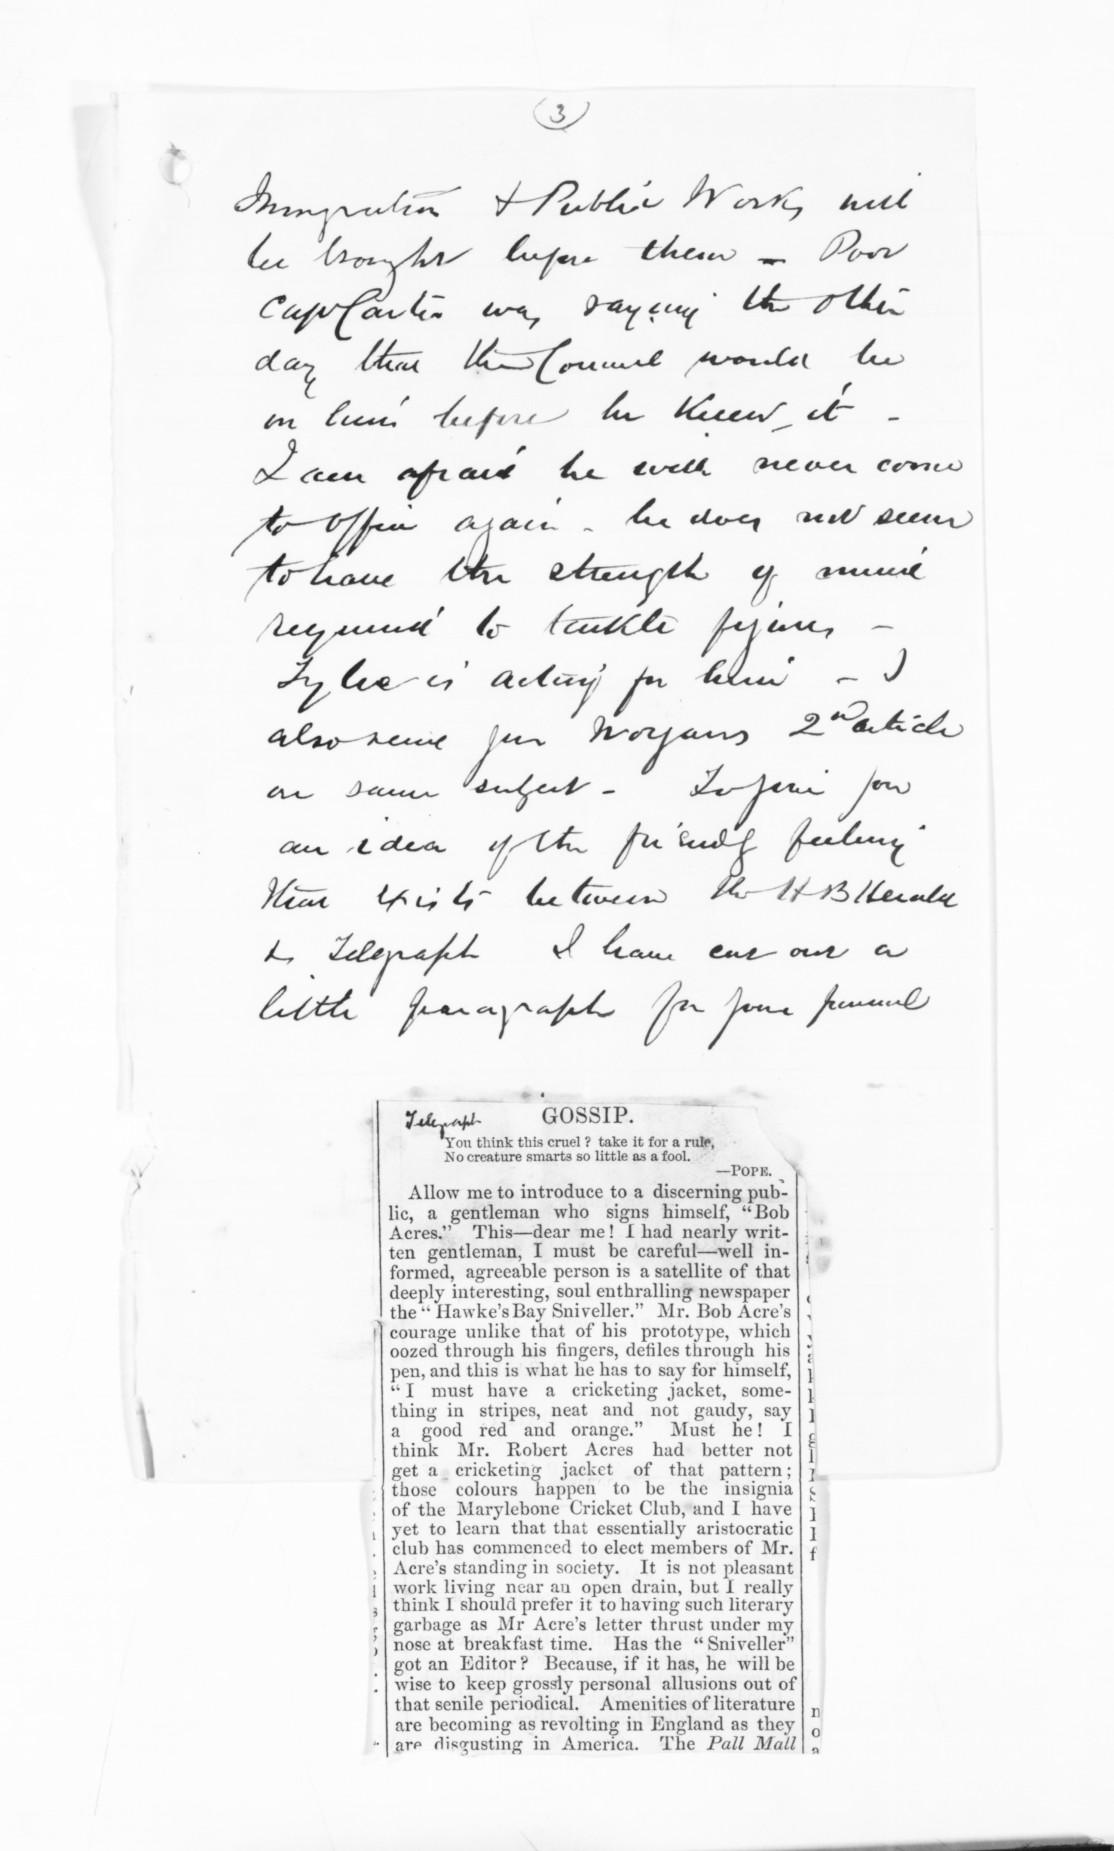 (3)
Immigration & Public Works will
be brought before them - Poor
Capt Carter was saying the other
day that the Council would be
on him before he knew it -
I am afraid he will never come
to Office again - he does not seem
to have the strength of mind
required to tackle figures -
Tylee is acting for him - I
also send you Worgans 2nd article
on same subject - To give you
an idea of the friendly feeling
that exists between the H B Herald
& Telegraph I have cut out a
little paragraph for your perusal
Telegraph GOSSIP.
You think this cruel? take it for a rule,
No creature smarts so little as a fool.
—POPE.
Allow me to introduce to a discerning pub-
lic, a gentleman who signs himself, "Bob
Acres." This—dear me! I had nearly writ-
ten gentleman, I must be careful—well in-
formed, agreeable person is a satellite of that
deeply interesting, soul enthralling newspaper
the "Hawke's Bay Sniveller." Mr. Bob Acre's
courage unlike that of his prototype, which
oozed through his fingers, defiles through his
pen, and this is what he has to say for himself,
"I must have a cricketing jacket, some-
thing in stripes, neat and not gaudy, say
a good red and orange." Must he! I
think Mr. Robert Acres had better not
get a cricketing jacket of that pattern;
those colours happen to be the insignia
of the Marylebone Cricket Club, and I have
yet to learn that that essentially aristocratic
club has commenced to elect members of Mr.
Acre's standing in society. It is not pleasant
work living near an open drain, but I really
think I should prefer it to having such literary
garbage as Mr Acre's letter thrust under my
nose at breakfast time. Has the "Sniveller"
got an Editor? Because, if it has, he will be
wise to keep grossly personal allusions out of
that senile periodical. Amenities of literature
are becoming as revolting in England as they
are disgusting in America. The Pall Mall